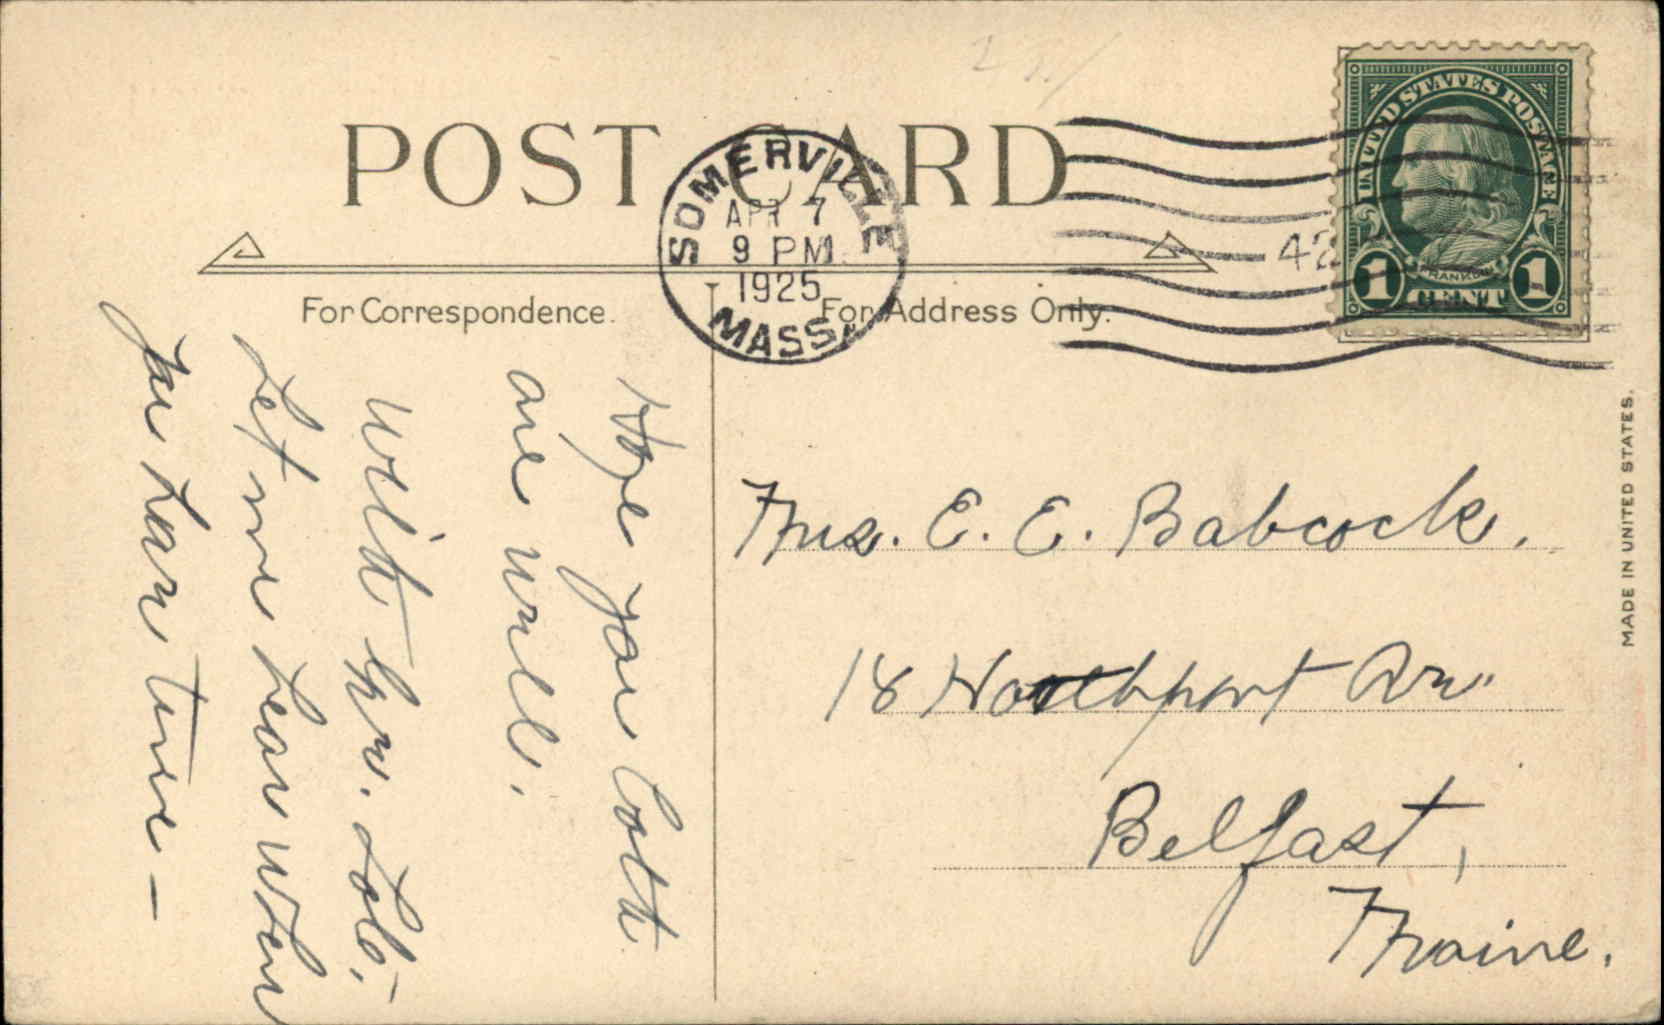 POST CARD
SOMERVILLE
APR 7
9 PM
1925
MASS.
UNITED STATES POSTAGE
FRANKLIN
1 CENT 1
42
For Correspondence.
For Address Only.
MADE IN UNITED STATES.
Hope you both
are well.
Will
Let me hear when
you have time —
Mrs. E. E. Babcock.
18 Northport Av"
Belfast,
Maine.